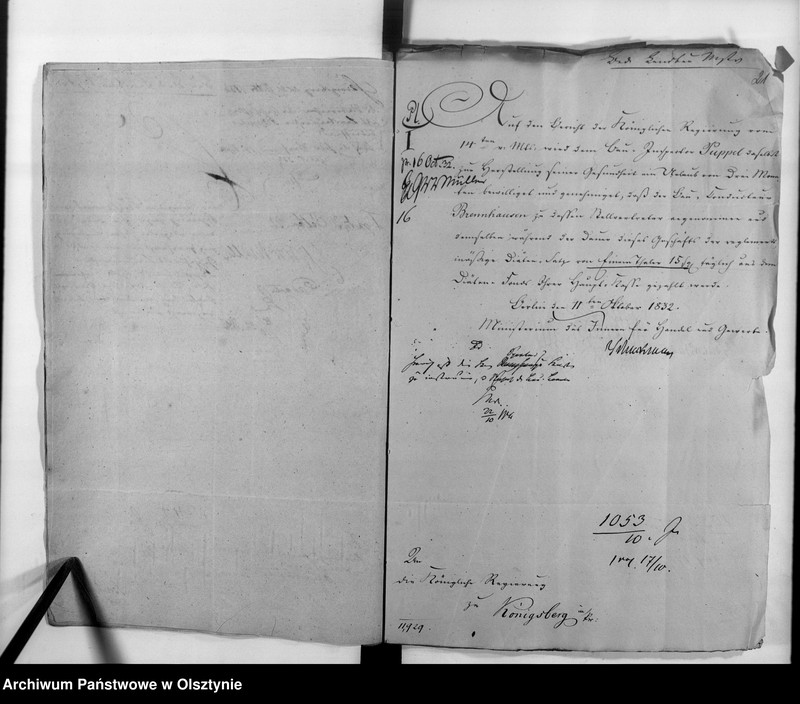 Pl.
I
pr. 16 Oct. 32.
Müller
16
Auf den Bericht der Königlichen Regierung vom
14ten v. Mts. wird dem Bau-Inspector Puppel daselbst
zu Herstellung seiner Gesundheit ein Urlaub von Drei Mona-
ten bewilligt und genehmigt, daß der Bau-Conducteur
Bronnhausen zu dessen Stellvertreter angenommen und
demselben während der Dauer dieses Geschäfts der reglements-
mäßige Diäten-Satz von Einem Thaler 15 Sg täglich aus dem
Diäten-Fonds Ihrer Haupt-Kasse gezahlt werde.
Berlin den 11ten Oktober 1832.
Ministerium des Innern für Handel und Gewerbe
1053/10. J.
17/10.
An
die Königliche Regierung
zu
Königsberg in Pr.
11,929.
Archiwum Państwowe w Olsztynie